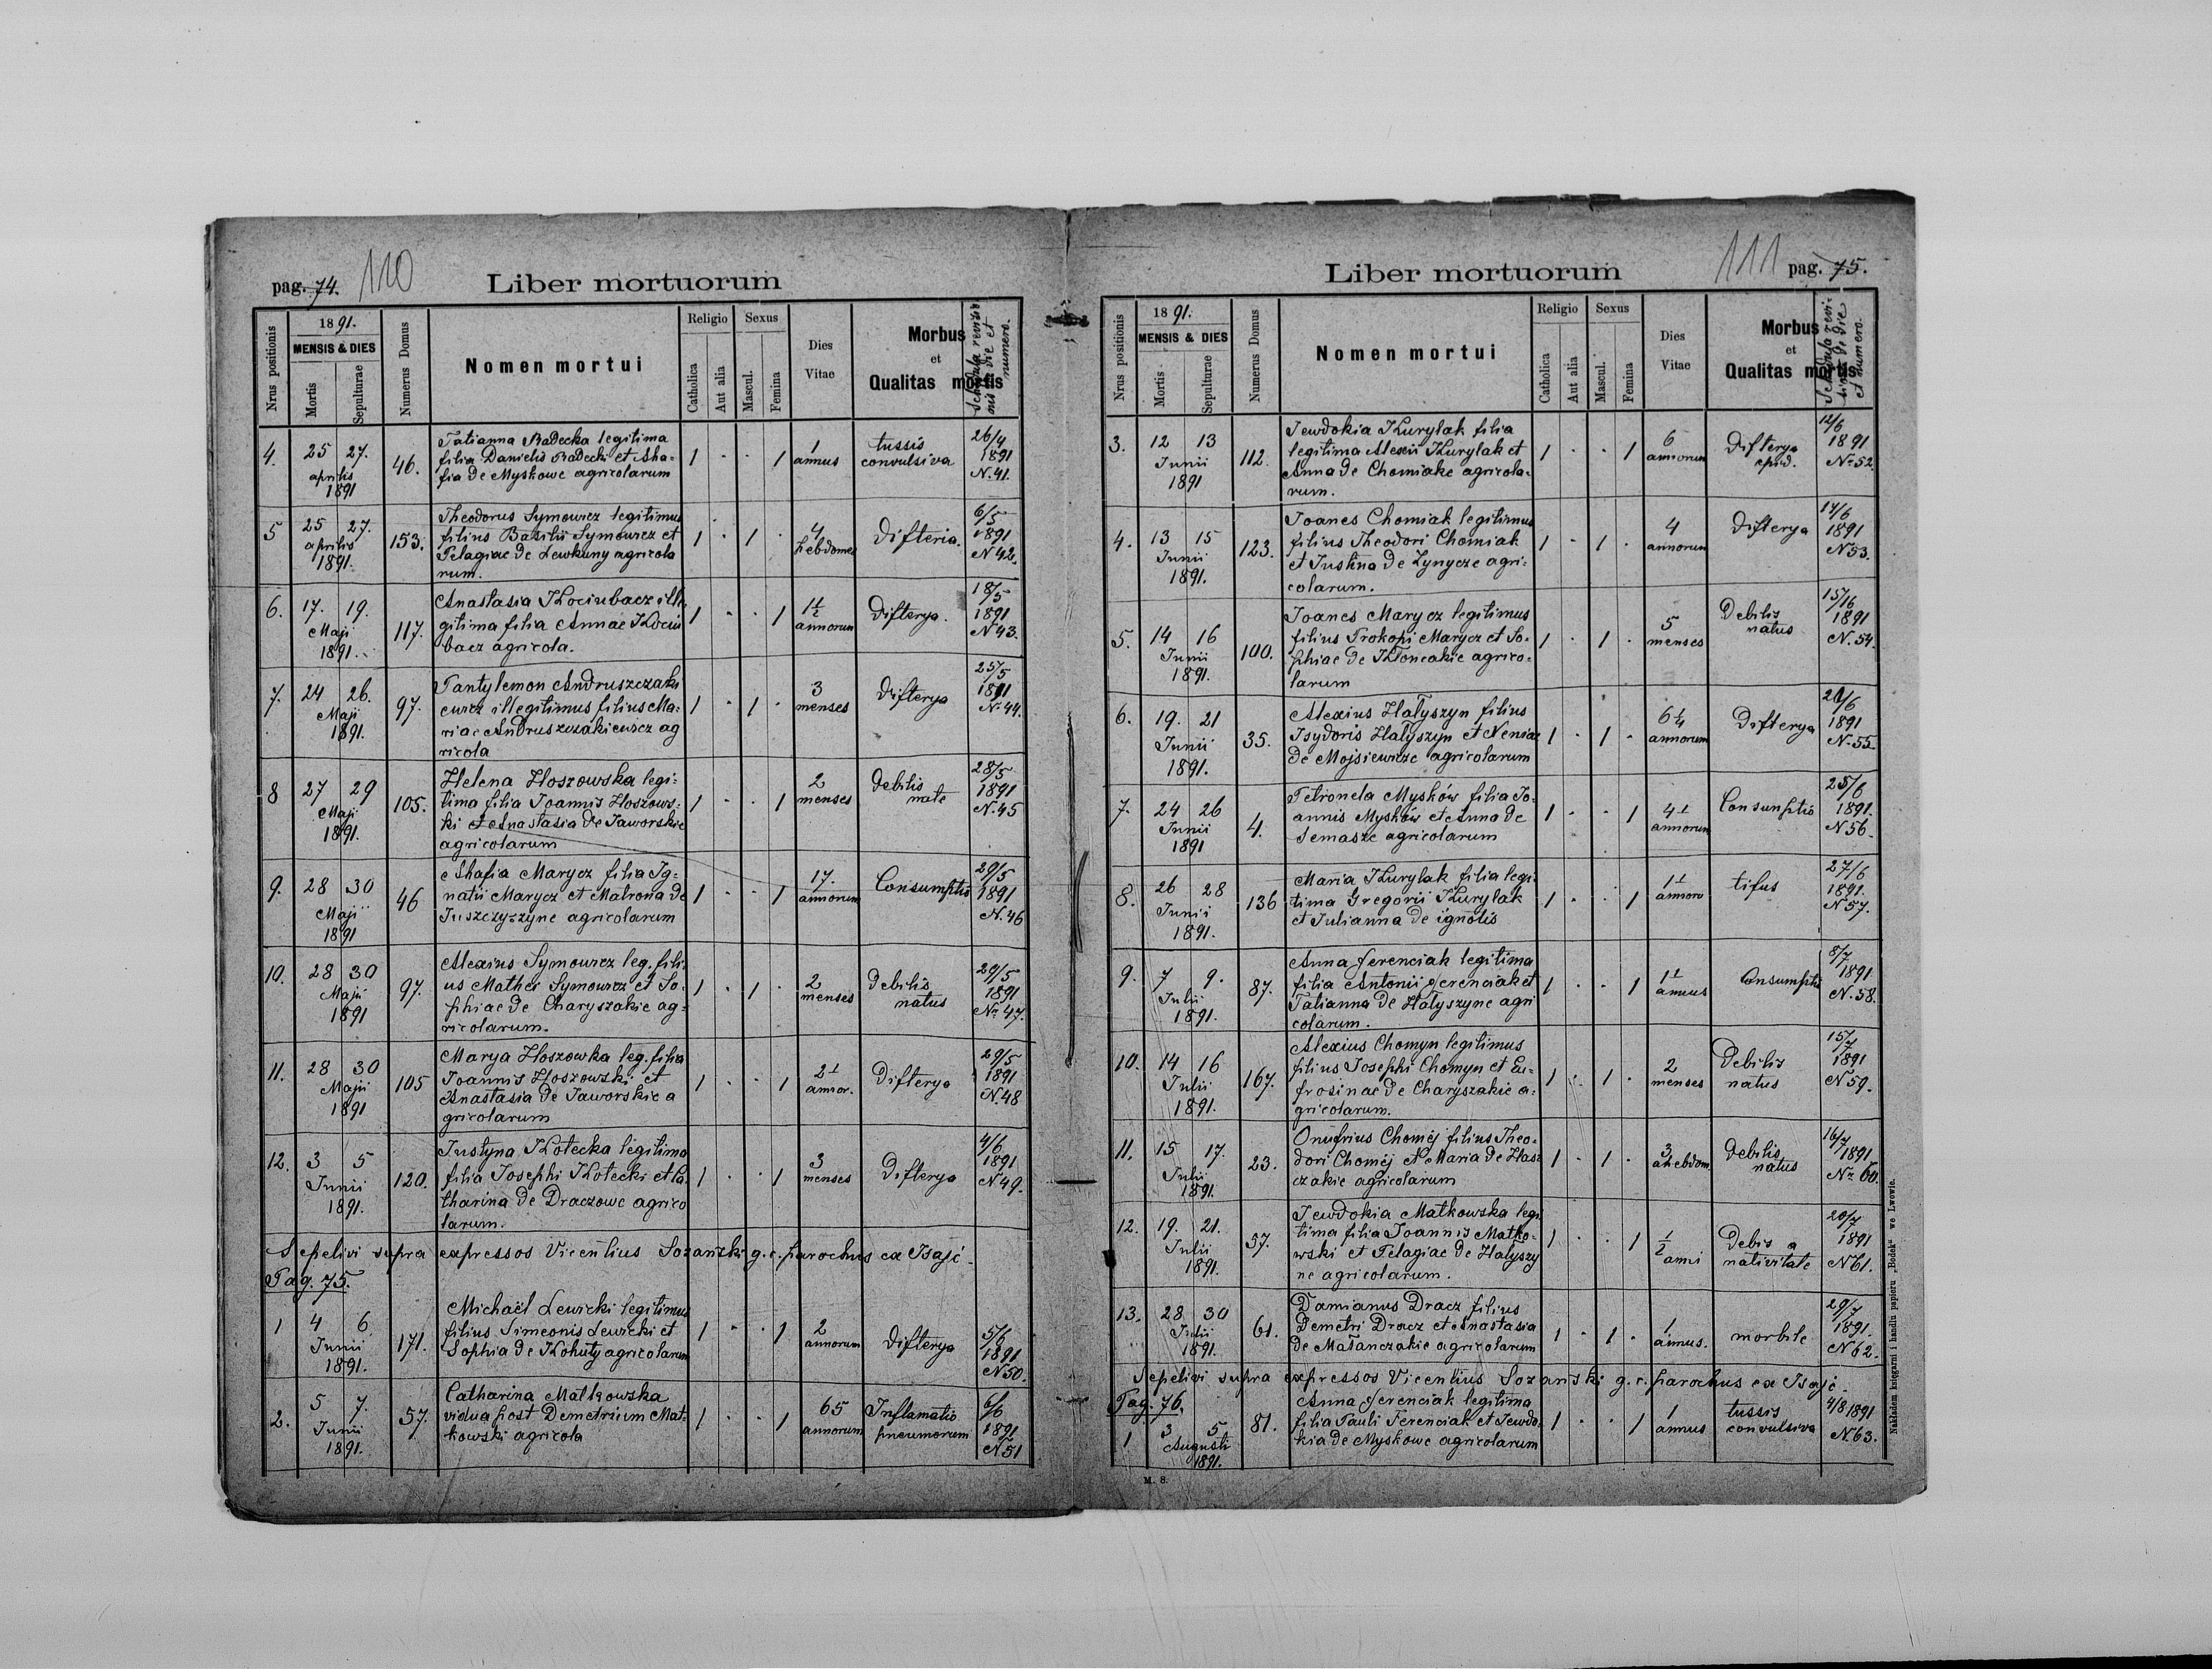 pag. 74. 110
Liber mortuorum
Nrus positionis
1891.
MENSIS & DIES
Mortis
Sepulturae
Numerus Domus
Nomen mortui
Religio
Catholica
Aut alia
Sexus
Mascul.
Femina
Dies
Vitae
Morbus
et
Qualitas mortis
4. 25 27. aprilis 1891 46.
Tatianna Radecka legitima
filia Danielis Radecki et Aha-
fia de Myskowe agricolarum
1 · · 1
1 annus
tussis
convulsiva
26/4
1891
N. 41.
5 25 27. aprilis 1891. 153.
Theodorus Symowicz legitimus
filius Bazilii Symowicz et
Pelagiae de Lewkuny agricola
rum.
1 · 1 ·
4 hebdomes
Difteria.
6/5
1891
N 42.
6. 17. 19. Maji 1891. 117.
Anastasia Kociubacz ille
gitima filia Annae Kociu
bacz agricola.
1 · · 1
1 1/2 annorum
Difterya.
18/5
1891
N 43.
7. 24 26. Maji 1891. 97.
Pantylemon Andruszczaki
ewicz illegitimus filius Ma-
riae Andruszczakiewicz ag
ricola
1 · 1 ·
3 menses
Difterya
25/5
1891
N. 44.
8 27 29 Maji 1891. 105.
Helena Hoszowska legi-
tima filia Joannis Hoszows-
ki et Anastasia de Jaworskie
agricolarum
1 · · 1
2 menses
Debilis
nate
28/5
1891
N. 45
9. 28 30 Maji 1891 46
Ahafia Marycz filia Ig-
natii Marycz et Matrona de
Juszczyszyne agricolarum
1 · · 1
17. annorum
Consumptis
29/5
1891
N. 46
10. 28 30 Maji 1891 97.
Alexius Symowicz leg. fili-
us Mathei Symowicz et So-
phiae de Charyszakie ag-
ricolarum.
1 · 1 ·
2 menses
Debilis
natus
29/5
1891
No 47.
11. 28 30 Maji 1891 105
Marya Hoszowka leg. filia
Joannis Hoszowski et
Anastasia de Jaworskie a
gricolarum
1 · · 1
2 1/ annor.
Difterya
29/5
1891
N. 48
12. 3 5 Junii 1891. 120.
Justyna Kotecka legitima
filia Josephi Kotecki et Ca
tharina de Draczowe agrico
larum.
1 · · 1
3 menses
Difterya
4/6
1891
N 49.
Sepelivi supra expressos Vicentius Sozanski g. c. parochus ex Isaje.
Pag. 75.
1 4 6 Junii 1891. 171.
Michaël Lewicki legitimus
filius Simeonis Lewicki et
Sophia de Kohuty agricolarum
1 · · 1
2 annorum
Difterya
5/6
1891
N 50.
2. 5 7. Junii 1891. 57.
Catharina Matkowska
vidua post Demetrium Mat-
kowski agricola
1 · · 1
65 annorum
Inflamatio
pneumorum
6/6
1891
N 51
Liber mortuorum
111 pag. 75.
Nrus positionis
1891.
MENSIS & DIES
Mortis
Sepulturae
Numerus Domus
Nomen mortui
Religio
Catholica
Aut alia
Sexus
Mascul.
Femina
Dies
Vitae
Morbus
et
Qualitas mortis
3. 12 13 Junii 1891 112.
Jewdokia Kurylak filia
legitima Alexii Kurylak et
Anna de Chomiake agricola-
rum.
1 · · 1
6 annorum
Difterya
epid.
12/6
1891
No 52
4. 13 15 Junii 1891. 123.
Joanes Chomiak legitimus
filius Theodori Chomiak
et Justina de Zynycze agri-
colarum.
1 · 1 ·
4 annorum
Difterya
14/6
1891
N 53.
5. 14 16 Junii 1891. 100.
Joanes Marycz legitimus
filius Prokopi Marycz et So-
phiae de Kłoncakie agrico-
larum
1 · 1 ·
5 menses
Debilis
natus
15/16
1891
N. 54.
6. 19. 21 Junii 1891. 35.
Alexius Hałyszyn filius
Isydoris Hałyszyn et Xeniae
de Mojsiewicze agricolarum
1 · 1 ·
6 1/4 annorum
Difterya
20/6
1891
N. 55.
7. 24 26 Junii 1891 4.
Petronela Myśków filia Jo-
annis Myśków et Anna de
Semasze agricolarum
1 · · 1
4 1/ annorum
Consumptio
25/6
1891.
N 56.
8. 26 28 Junii 1891. 136
Maria Kurylak filia legi-
tima Gregorii Kurylak
et Julianna de ignotis
1 · · 1
1 1/ annoru
tifus
27/6
1891.
N 57.
9. 7 9. Julii 1891. 87.
Anna Ferenciak legitima
filia Antonii Ferenciak et
Tatianna de Hałyszyne agri
colarum.
1 · · 1
1 1/ annus
Consumptis
8/7
1891.
N. 58.
10. 14 16 Julii 1891. 167.
Alexius Chomyn legitimus
filius Josephi Chomyn et Eu-
frosinae de Charyszakie a-
gricolarum.
1 · 1 ·
2 menses
Debilis
natus
15/7
1891
N 59.
11. 15 17. Julii 1891. 23.
Onufrius Chomėj filius Theo-
dori Chomėj et Maria de Has-
czakie agricolarum
1 · 1 ·
3 ahebdom.
Debilis
natus
16/7
1891.
No 60.
12. 19. 21. Julii 1891. 57.
Jewdokia Matkowska legi
tima filia Joannis Matko-
wski et Pelagiae de Hałyszy
ne agricolarum.
1 · · 1
1/2 anni
Debis a
nativitate
20/7
1891
N 61.
13. 28 30 Julii 1891. 61.
Damianus Dracz filius
Demetri Dracz et Anastasia
de Matanczakie agricolarum
1 · 1 ·
1 annus.
morbile
29/7
1891.
N 62.
Sepelivi supra expressos Vicentius Sozanski g. c. parochus ex Isaje.
Pag. 76.
1 3 5 Augusti 1891. 81.
Anna Ferenciak legitima
filia Pauli Ferenciak et Jewdo-
kia de Myskowe agricolarum
1 · · 1
1 annus
tussis
convulsiva
4/8 1891
N. 63.
M. 8.
Nakładem księgarni i handlu papieru „Bodek" we Lwowie.